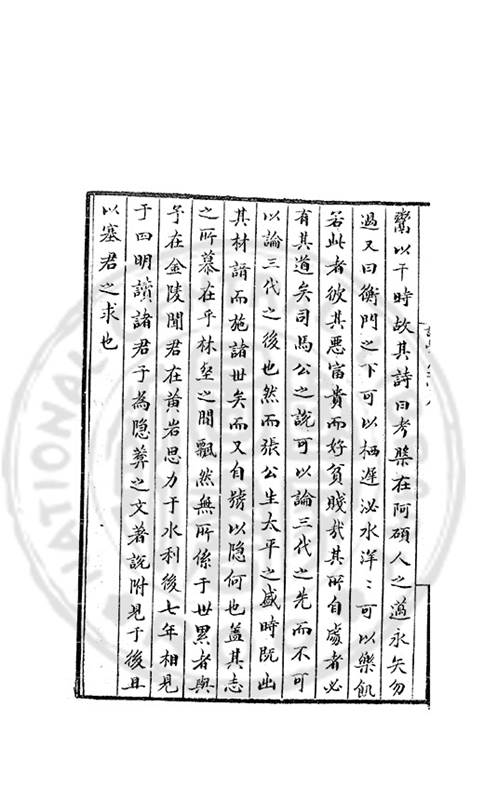 鬻以干時故其詩曰考槃在阿碩人之薖永矢勿
過又曰衡門之下可以栖遲泌水洋〻可以樂飢
若此者彼其惡富貴而好貧賤哉其所自處者必
有其道矣司馬公之說可以論三代之先而不可
以論三代之後也然而張公生太平之盛時既出
其材諝而施諸世矣而又自號以隐何也盖其志
之所慕在乎林壑之間飄然無所係于世累者與
予在金陵聞君在黄岩思力于水利後七年相見
于四明讀諸君子為隐葊之文著說附見于後且
以塞君之求也
NATIONAL